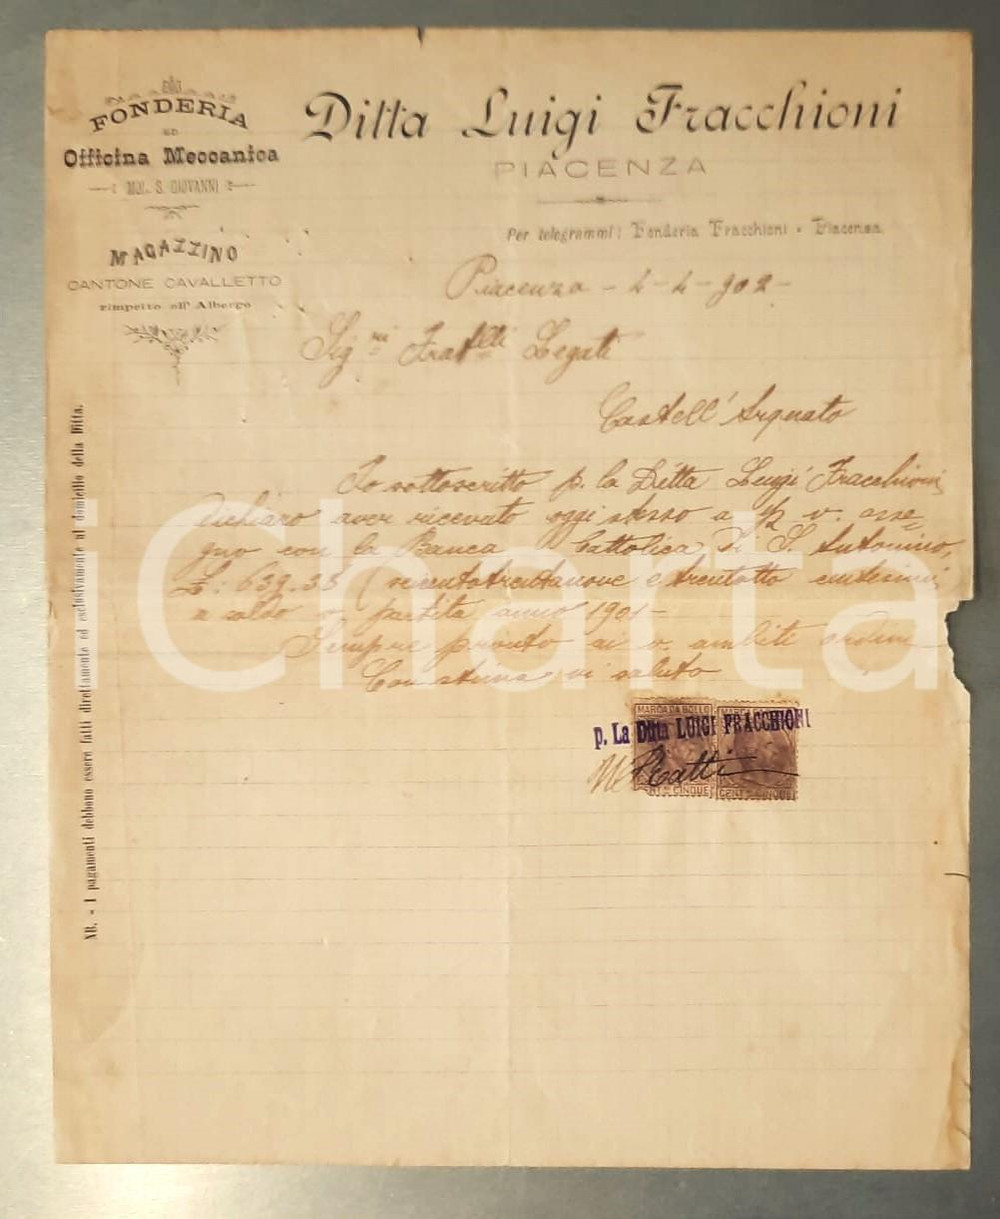 FONDERIA
ED
Officina Meccanica
MOL. S. GIOVANNI
MAGAZZINO
CANTONE CAVALLETTO
rimpetto all' Albergo
Ditta Luigi Fracchioni
PIACENZA
Per telegrammi: Fonderia Fracchioni - Piacenza
Piacenza - 4-4-902-
Sigri Fratelli Legati
Castell'Arquato
Io sottoscritto p. la Ditta Luigi Fracchioni
dichiaro aver ricevuto oggi stesso a 1/2 v. asse=
gno con la Banca Cattolica di S. Antonino,
£: 639.38 (seicentotrentanove e trentotto centesimi
a saldo v. partita anno 1901-
Sempre pronto ai v. ambiti ordini
Con stima vi saluto
MARCA DA BOLLO
p. La Ditta LUIGI FRACCHIONI
Ratti
CENT. DI CINQUE
CENT. DI CINQUE
NB. - I pagamenti debbono essere fatti direttamente ed esclusivamente al domicilio della Ditta.
iCharta